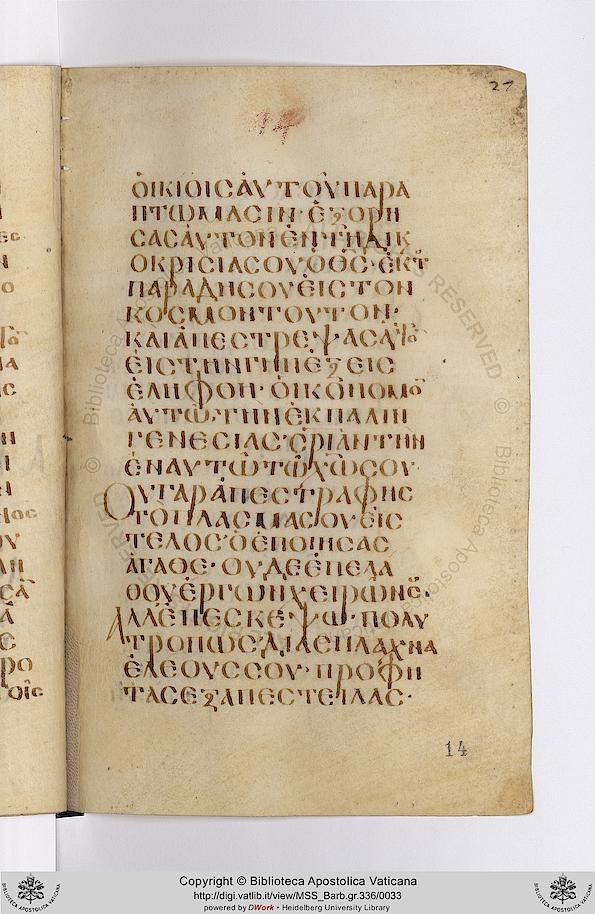 27
14
ὁικιοισἀυτοῦπαρα
πτωμασιν· ἐξορη
σασἀυτονἐντῆδικ
οκρισιασουὁθς· ἐκτ
παραδησουἐιστον
κοσμοντουτον·
καιἀπεστρεψασἀυ
ἐιστηνγηνἐξεισ
ἐληφθη· ὀικονομο
ἀυτωτηνἐκπαλιν
γενεσιασσριἀντην
ἐναυτῶτῶχωσου·
Ουγαρἀπεστραφησ
τοπλασμασουεἰσ
τελοσ· ὁἐποιησασ
ἀγαθε· ουδεἐπελα
θουἐργωνχειρῶνσ·
Αλλἐπεσκεψω· πολυ
τροπωσδιἀσπλαχνα
ἐλεουσσου· προφη
τασεξαπεστειλασ·
14
Copyright © Biblioteca Apostolica Vaticana
http://digi.vatlib.it/view/MSS_Barb.gr.336/0033
powered by DWork • Heidelberg University Library